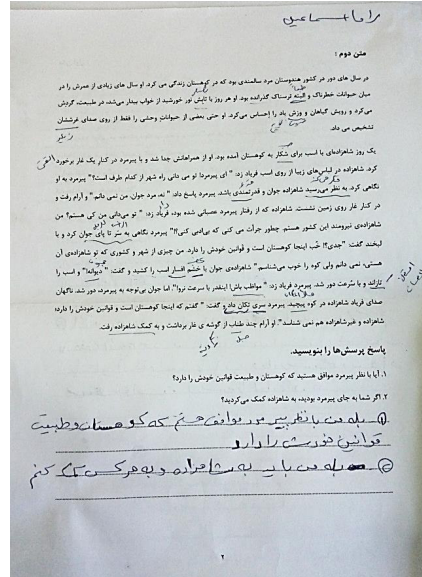 راما اسماعیل
متن دوم :
در سال های دور در کشور هندوستان مرد سالمندی بود که در کوهستان زندگی می کرد. او سال های زیادی از عمرش را در
میان حیوانات خطرناک و البته ترسناک گذرانده بود. او هر روز با تابش نور خورشید از خواب بیدار می‌شد، در طبیعت، گردش
می‌کرد و رویش گیاهان و وزش باد را احساس می‌کرد. او حتی بعضی از حیوانات وحشی را فقط از روی صدای غرششان
تشخیص می داد.
یک روز شاهزاده‌ای با اسب برای شکار به کوهستان آمده بود. او از همراهانش جدا شد و با پیرمرد در کنار یک غار برخورد
کرد. شاهزاده در لباس‌های زیبا از روی اسب فریاد زد: " ای پیرمرد! تو می دانی راه شهر از کدام طرف است؟" پیرمرد به او
نگاهی کرد. به نظر می‌رسید شاهزاده جوان و قدرتمندی باشد. پیرمرد پاسخ داد: " نه، مرد جوان، من نمی دانم." و آرام رفت و
در کنار غار روی زمین نشست. شاهزاده که از رفتار پیرمرد عصبانی شده بود، فریاد زد: " تو می‌دانی من کی هستم؟ من
شاهزاده‌ی نیرومند این کشور هستم. چطور جرأت می کنی که بی‌ادبی کنی؟!" پیرمرد نگاهی به سَر تا پای جوان کرد و با
لبخند گفت: "جدی؟! خُب اینجا کوهستان است و قوانین خودش را دارد. من چیزی از شهر و کشوری که تو شاهزاده‌ی آن
هستی، نمی دانم ولی کوه را خوب می‌شناسم." شاهزاده‌ی جوان با خشم افسار اسب را کشید و گفت: " دیوانه!" و اسب را
تازاند و با سرعت دور شد. پیرمرد فریاد زد: " مواظب باش! اینقدر با سرعت نرو!". اما جوان بی‌توجه به پیرمرد، دور شد. ناگهان
صدای فریاد شاهزاده در کوه پیچید. پیرمرد سری تکان داد و گفت: " گفتم که اینجا کوهستان است و قوانین خودش را دارد؛
شاهزاده و غیرشاهزاده هم نمی شناسد". او آرام چند طناب از گوشه ی غار برداشت و به کمک شاهزاده رفت.
پاسخ پرسش‌ها را بنویسید.
۱. آیا با نظر پیرمرد موافق هستید که کوهستان و طبیعت قوانین خودش را دارد؟
۲. اگر شما به جای پیرمرد بودید، به شاهزاده کمک می‌کردید؟
① بله من با نظر پیر مرد موافق هستم که کوهستان و طبیعت
قوانین خودش را دارد
② بله من باید به شاهزاده و به هر کس کمک کنم
۲